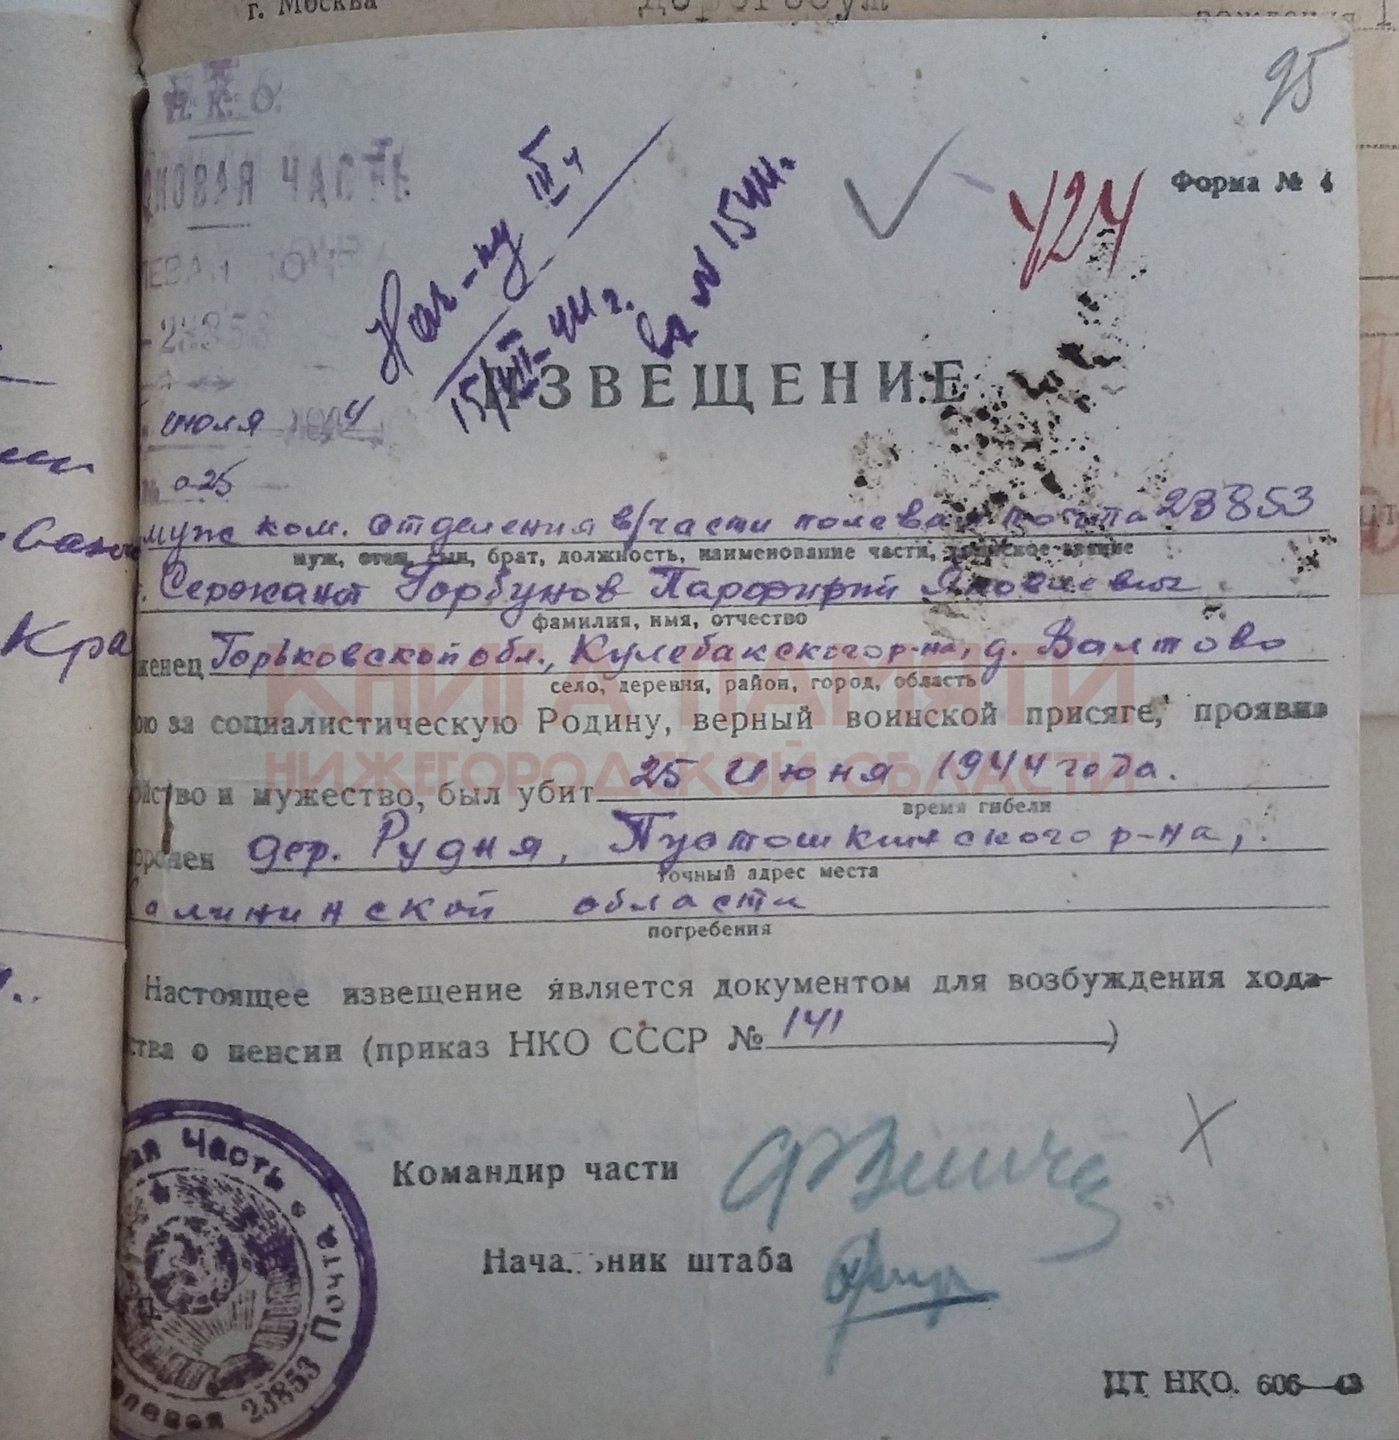 г. Москва
Дорогобуж
95
Н. К. О.
КОВАЯ ЧАСТЬ
ЛЕВАЯ
424
Форма № 4
Нач-ку III ч
15/VII-44 г.
вх № 1544.
ИЗВЕЩЕНИЕ
июля 1944
№ 025
муж ком. отделения в/части полевая почта 23853
муж, отец, сын, брат, должность, наименование части, воинское звание
Сержант Горбунов Парфирий Яковлевич
фамилия, имя, отчество
женец Горьковской обл., Кулебакского р-на, д. Валтово
село, деревня, район, город, область
ою за социалистическую Родину, верный воинской присяге, проявив
ойство и мужество, был убит 25 июня 1944 года.
время гибели
оронен дер. Рудня, Пустошкинского р-на,
точный адрес места
Калининской области
погребения
Настоящее извещение является документом для возбуждения хода-
ства о пенсии (приказ НКО СССР № 141)
Командир части
Начальник штаба
Часть • Почта
Полевая 23853
ЦТ НКО. 606—43
КНИГА ПАМЯТИ
НИЖЕГОРОДСКОЙ ОБЛАСТИ